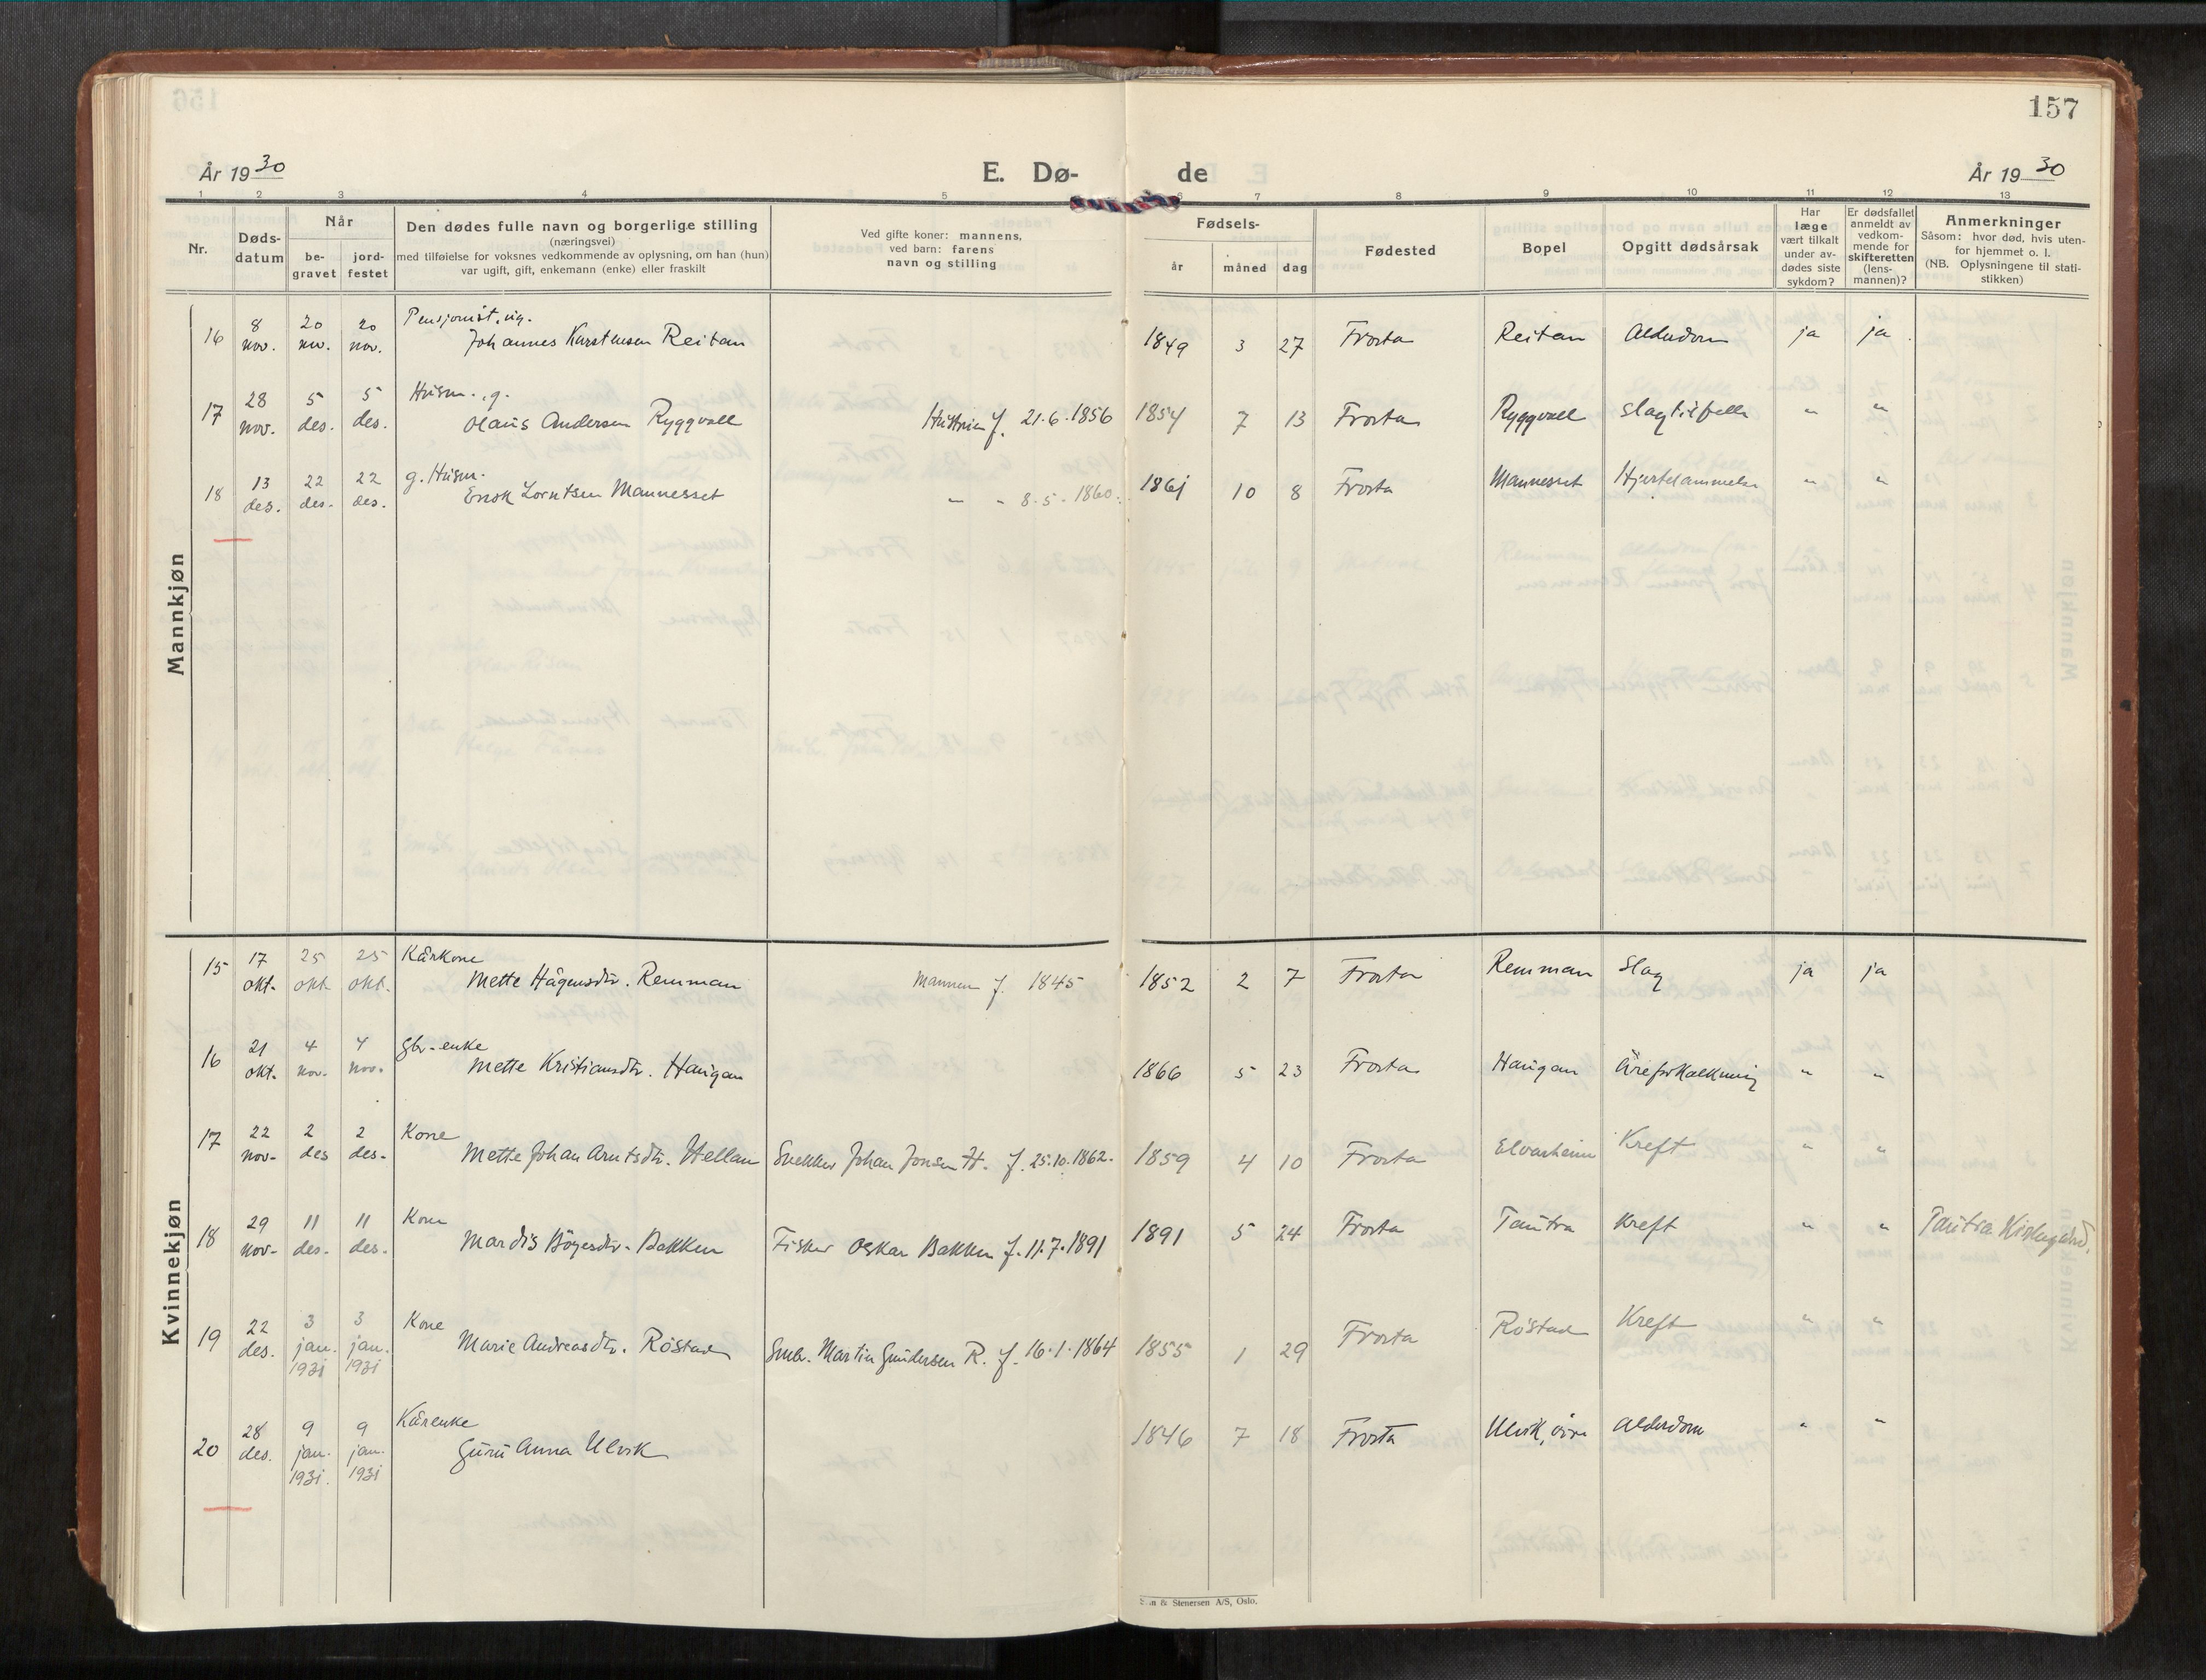 157
År 1930
E. Dø-
de
År 1930
1 2 3 4 5 6 7 8 9 10 11 12 13
Nr.
Døds-
datum
Når
be-
gravet
jord-
festet
Den dødes fulle navn og borgerlige stilling
(næringsvei)
med tilføielse for voksnes vedkommende av oplysning, om han (hun)
var ugift, gift, enkemann (enke) eller fraskilt
Ved gifte koner: mannens,
ved barn: farens
navn og stilling
Fødsels-
år måned dag
Fødested
Bopel
Opgitt dødsårsak
Har
læge
vært tilkalt
under av-
dødes siste
sykdom?
Er dødsfallet
anmeldt av
vedkom-
mende for
skifteretten
(lens-
mannen)?
Anmerkninger
Såsom: hvor død, hvis uten-
for hjemmet o. l.
(NB. Oplysningene til stati-
stikken)
Mannkjøn
8 20 20 Pensjonist, ug.
16 nov. nov. nov. Johannes Karstensen Reitan 1849 3 27 Frosta Reitan Alderdom ja ja.
28 5 5 Husm., g.
17 nov. des. des. Olaus Andersen Ryggvoll Hustruen f. 21.6.1856 1854 7 13 Frosta Ryggvoll Slagtilfelle " "
13 22 22 g. Husm.
18 des. des. des. Enok Lorntsen Mannesset " " 8.5.1860. 1861 10 8 Frosta Mannesset Hjertelammelse " "
Kvinnekjøn
17 25 25 Kårkone
15 okt. okt. okt. Mette Hågensdtr. Remman Mannen f. 1845 1852 2 7 Frosta Remman Slag ja ja
21 4 4 Gbr.-enke
16 okt. nov. nov. Mette Kristiansdtr. Haugan 1866 5 23 Frosta Haugan Åreforkalkning " "
22 2 2 Kone
17 nov. des des. Mette Johan Arntsdtr. Hellan Snekker Johan Jonsen H. f. 25.10.1862. 1859 4 10 Frosta Elvarheim Kreft " "
29 11 11 Kone
18 nov. des. des. Mardis Böyesdtr. Bakken Fisker Oskar Bakken f. 11.7.1891 1891 5 24 Frosta Tautra Kreft " " Tautra
22 3 3 Kone
19 des. jan. jan. Marie Andreasdtr. Röstad Smbr. Martin Gundersen R. f. 16.1.1864 1855 1 29 Frosta Röstad Kreft " "
1931 1931
28 9 9 Kårenke
20 des. jan. jan. Guru Anna Ulvik 1846 7 18 Frosta Ulvik, övre Alderdom " "
1931. 1931
& Stenersen A/S, Oslo.